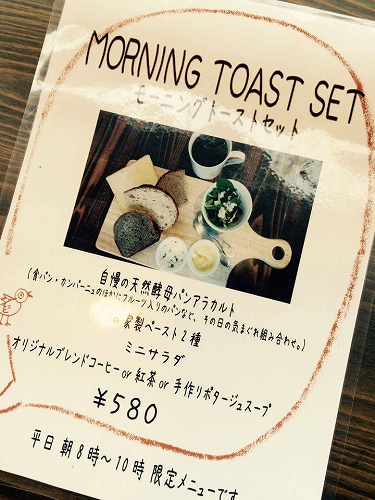 MORNING TOAST SET
モーニングトーストセット
自慢の天然酵母パンアラカルト
(食パン・カンパーニュのほかにフルーツ入りのパンなど、その日の気まぐれ組み合わせ。)
家製ペースト2種
ミニサラダ
オリジナルブレンドコーヒー or 紅茶 or 手作りポタージュスープ
¥580
平日 朝8時～10時 限定メニューです